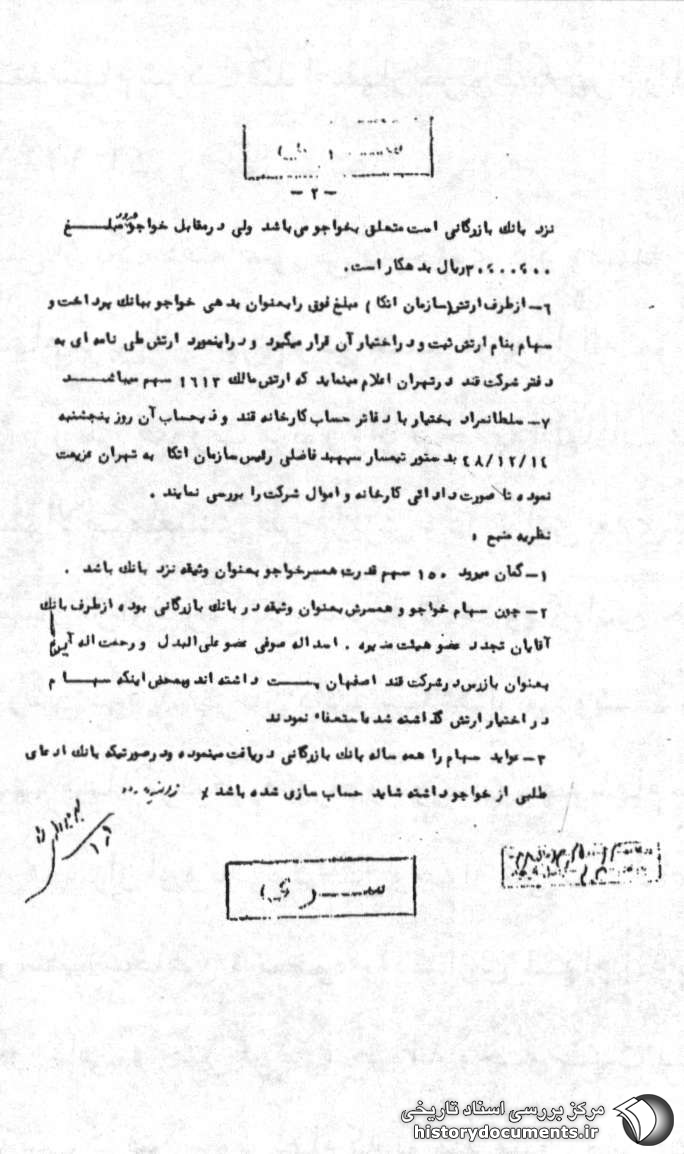 -۲-
نزد بانك بازرگانی است متعلق بخواجو می باشد ولی در مقابل خواجو مبلــــغ
۳۰۹۰۰۹۰۰ ریال بدهکار است.
۶- از طرف ارتش (سازمان اتکا ) مبلغ فوق را بعنوان بدهی خواجو ببانك پرداخت و
سهام بنام ارتش ثبت و در اختیار آن قرار میگیرد و در اینمورد ارتش طی نامه ای به
دفتر شرکت قند در تهران اعلام مینماید که ارتش مالك ۱۶۱۳ سهم میباشــــد
۷- سلطانمراد بختیار با دفاتر حساب کارخانه قند و ذیحساب آن روز پنجشنبه
۴۸/۱۲/۱۴ بدستور تیمسار سپهبد فاضلی رئیس سازمان اتکا به تهران عزیمت
نموده تا صورت دارائی کارخانه و اموال شرکت را بررسی نمایند .
نظریه منبع :
۱- گمان میرود ۱۵۰ سهم قدرت همسر خواجو بعنوان وثیقه نزد بانك باشد .
۲- چون سهام خواجو و همسرش بعنوان وثیقه در بانك بازرگانی بوده از طرف بانك
آقایان تجدد عضو هیئت مدیره . اسداله صوفی عضو علی البدل و رحمت اله
بعنوان بازرس در شرکت قند اصفهان پســـت داشته اند و بمحض اینکه سهـــام
در اختیار ارتش گذاشته شد مستعفاء نمودند
۳- عواید سهام را همه ساله بانك بازرگانی دریافت مینموده و در صورتیکه بانك ادعای
طلبی از خواجو داشته شاید حساب سازی شده باشد
ســـری
مرکز بررسی اسناد تاریخی
historydocuments.ir